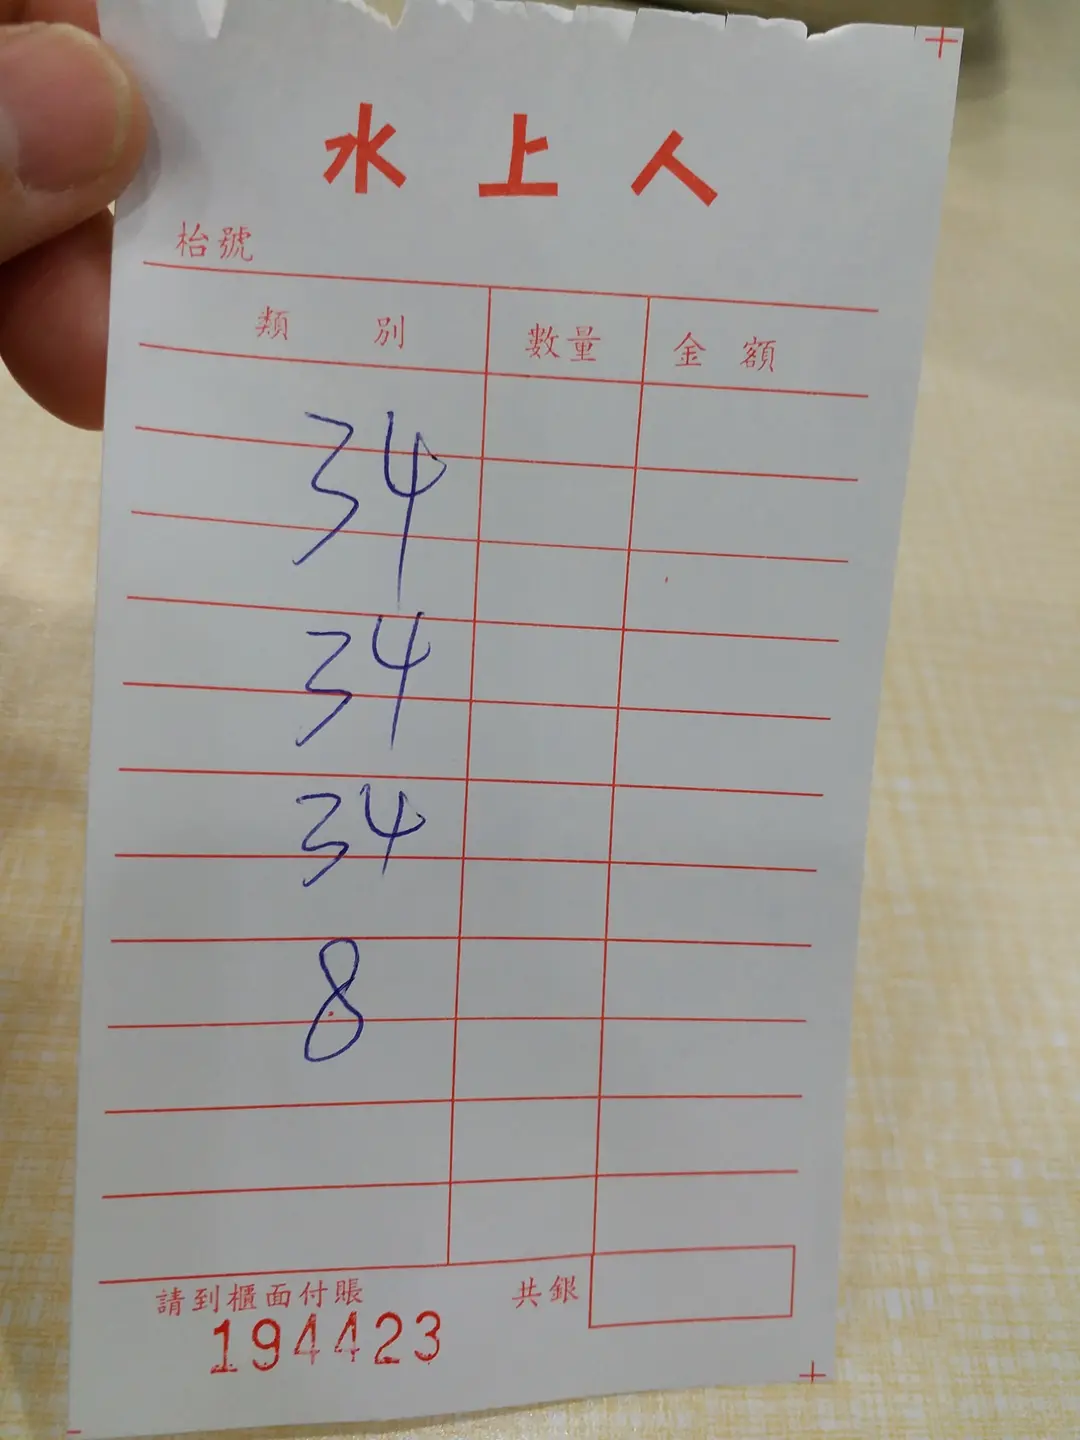 水上人
枱號
類別 數量 金額
34
34
34
8
請到櫃面付賬 共銀
194423